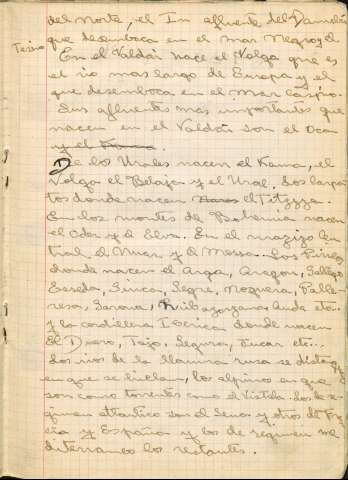 del Norte, el Inn afluente del Danubio
que desemboca en el mar Negro y el
Tesino
En el Valdái nace el Volga que es
el río mas largo de Europa y el
que desemboca en el Mar Caspio.
Sus afluentes mas importantes que
nacen en el Valdái son el Oca
y el
De los Urales nacen el Kama, el
Volga el Belaja y el Ural. Los Carpa
tos donde nacen el Titzza.
En los montes de Bohemia nacen
el Oder y el Elva. En el mazizo Cen
tral el y el Mossa. Los Pirineos
donde nacen el Arga, Aragon, Gallego
Esreda, Cinca, Segre, Noguera, Palla-
resa, Ribagorzana Aude etc..
y la cordillera Iberica donde nacen
El Duero, Tajo, Segura, Jucar etc...
Los rios de la llanura rusa se disting
en que se hielan, los alpinos en que
son como torrentes como el Vistula. Los de re-
gimen atlantico son el Sena y otros de Fra
cia y España y los de regimen me
diterraneo los restantes.